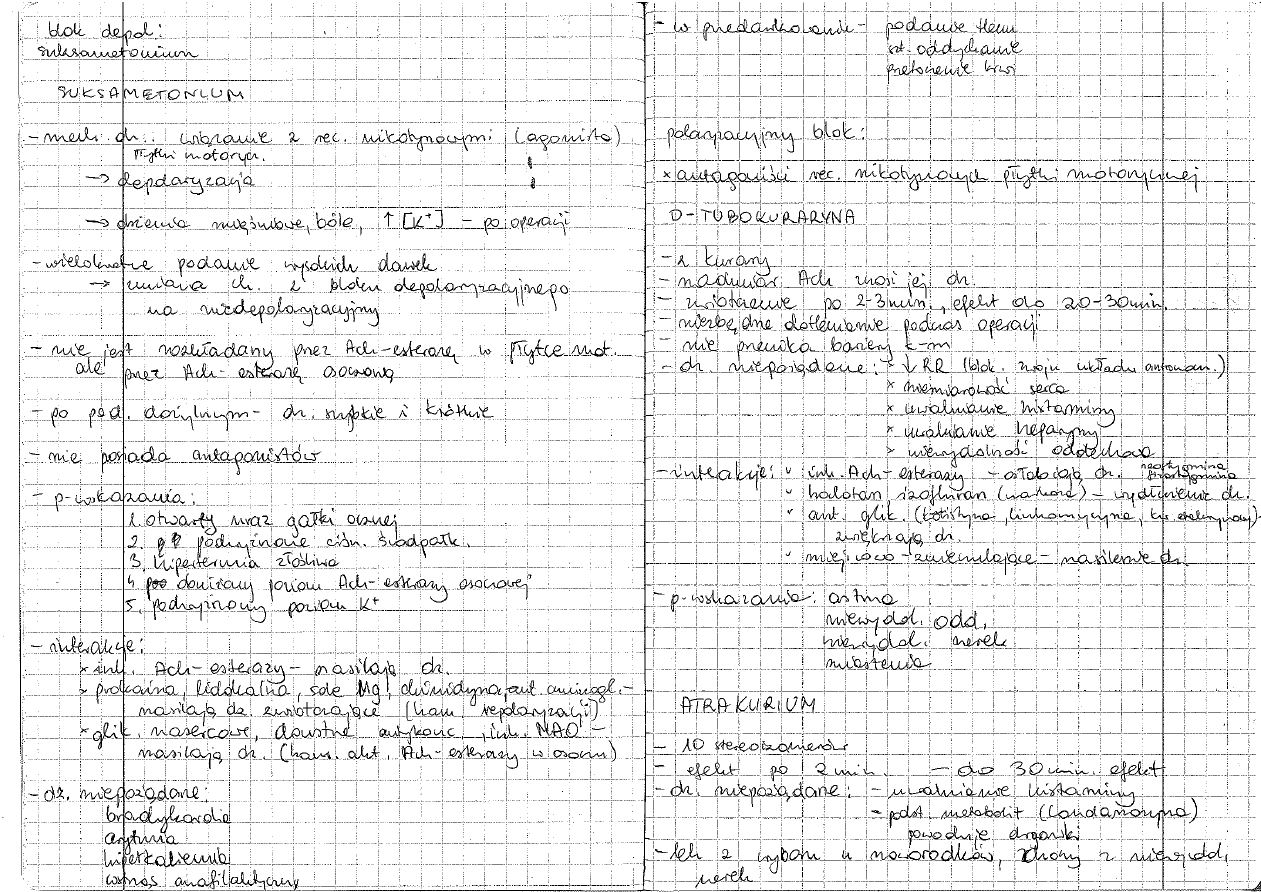 blok depol:
suksametonium
SUKSAMETONIUM
- mech. dz.: wiązanie z rec. nikotynowymi (agonista)
płytki motorycz.
→ depolaryzacja
→ drżenia mięśniowe, bóle, ↑[K⁺] - po operacji
- wielokrotne podanie wysokich dawek
→ zmiana ch. z bloku depolaryzacyjnego
na niedepolaryzacyjny
- nie jest rozkładany przez Ach-esterazę w płytce mot.
ale przez Ach-esterazę osoczową
- po pod. dożylnym - dz. szybkie i krótkie
- nie posiada antagonistów
- p-wskazania:
1. otwarty uraz gałki ocznej
2. podwyższone ciśn. śródgałk.
3. hipertermia złośliwa
4. obniżony poziom Ach-esterazy osoczowej
5. podwyższony poziom K⁺
- interakcje:
× inh. Ach-esterazy - nasilają dz.
> prokaina, lidokaina, sole Mg, chinidyna, ant. aminogl. -
nasilają dz. zwiotczające (ham. repolaryzacji)
× glik. nasercowe, doustne antykonc., inh. MAO -
nasilają dz. (ham. akt. Ach-esterazy w osoczu)
- dz. niepożądane:
bradykardia
arytmia
hiperkaliemia
wstrząs anafilaktyczny
- w przedawkowaniu - podawanie tlenu
szt. oddychanie
przetoczenie krwi
polaryzacyjny blok:
× antagoniści rec. nikotynowych płytki motorycznej
D-TUBOKURARYNA
- z kurary
- nadmiar Ach znosi jej dz.
- zwiotczenie po 2-3 min., efekt do 20-30 min.
- niezbędne dotlenianie podczas operacji
- nie przenika bariery k-m
- dz. niepożądane: > ↓RR (blok. zwoju układu autonom.)
× niemiarowość serca
× uwalnianie histaminy
× uwalnianie heparyny
> niewydolność oddechowa
- interakcje: ˅ inh. Ach-esterazy - osłabiają dz. neostygmina
˅ halotan, izofluran (narkoza) - wydłużenie dz.
˅ ant. glik. (kolistyna, linkomycyna,
zwiększają dz.
˅ miejscowo-znieczulające - nasilenie dz.
- p-wskazania: astma
niewydol. odd.
niewydol. nerek
miastenia
ATRAKURIUM
- 10 stereoizomerów
- efekt po 2 min. - do 30 min. efekt
- dz. niepożądane: - uwalnianie histaminy
- podst. metabolit (laudanozyna)
powoduje drgawki
- lek z wyboru u noworodków, chorych z niewydol.
nerek